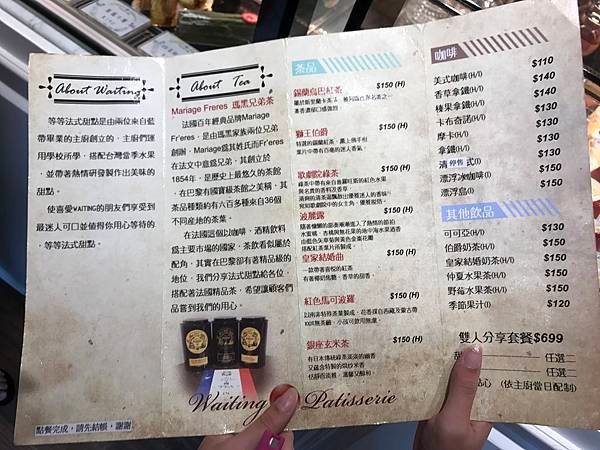 About Waiting
等等法式甜點是由兩位來自藍
帶畢業的主廚創立的，主廚們運
用學校所學，搭配台灣當季水果
，並帶著熱情研發製作出美味的
甜點。
使喜愛WAITING的朋友們享受到
最迷人可口並值得你用心等待的
，等等法式甜點。
點餐完成，請先結帳，謝謝
About Tea
Mariage Freres 瑪黑兄弟茶
法國百年經典品牌Mariage
Fr'eres，是由瑪黑家族兩位兄弟
創辦，Mariage為其姓氏而Fr'eres
在法文中意為兄弟，其創立於
1854年，是歷史上最悠久的茶館
，在巴黎有國寶級茶館之美稱，其
茶品種類約有六百多種來自36個
不同產地的茶葉。
在法國這個以咖啡、酒精飲料
為主要市場的國家，茶飲看似屬於
配角，其實在巴黎卻有著精品級的
地位，我們分享法式甜點給各位，
搭配著法國精品茶，希望讓顧客們
品嘗到我們的用心。
茶品
錫蘭烏巴紅茶 $150 (H)
獅王伯爵 $150 (H)
特選的錫蘭紅茶，薰上佛手柑
葉片中帶有百毫的迷人香氣。
歌劇院綠茶 $150 (H)
波麗露 $150 (H)
皇家結婚曲 $150 (H)
一款帶著喜悅的紅茶
有著椰奶焦糖，香草的甜香。
紅色馬可波羅 $150 (H)
銀座玄米茶 $150 (H)
Waiting Patisserie
咖啡
美式咖啡(H/I) $110
香草拿鐵(H/I) $140
榛果拿鐵(H/I) $140
卡布奇諾(H/I) $130
摩卡(H/I) $140
拿鐵(H/I) $130
停售 式(I) $150
漂浮冰咖啡(I) $150
漂浮(I) $150
其他飲品
可可亞(H/I) $130
伯爵奶茶(H/I) $150
皇家結婚奶茶(H/I) $150
仲夏水果茶(H/I) $150
野莓水果茶(H/I) $150
季節果汁(I) $120
雙人分享套餐$699
甜 任選二
任選二
點心 (依主廚當日配制)